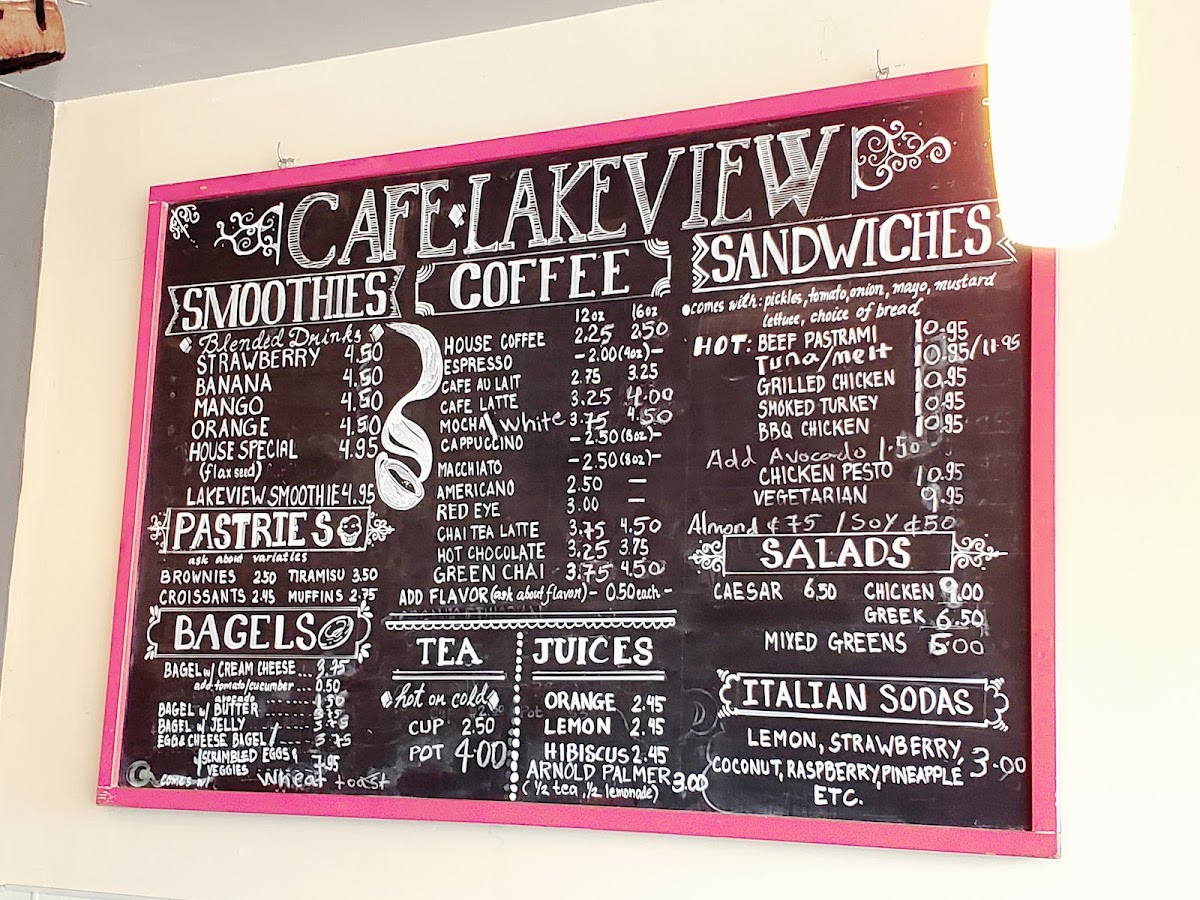 CAFE·LAKEVIEW
SMOOTHIES
Blended Drinks
STRAWBERRY 4.50
BANANA 4.50
MANGO 4.50
ORANGE 4.50
HOUSE SPECIAL 4.95
(flax seed)
LAKEVIEW SMOOTHIE 4.95
PASTRIES
ask about variaties
BROWNIES 2.50 TIRAMISU 3.50
CROISSANTS 2.45 MUFFINS 2.75
BAGELS
BAGEL w/ CREAM CHEESE ... 3.75
add: tomato/cucumber ... 0.50
avocado ........ 1.50
BAGEL w/ BUTTER ........
BAGEL w/ JELLY ........
EGG & CHEESE BAGEL / 5.75
w/SCRAMBLED EGGS &
VEGGIES 7.95
comes w/ wheat toast
COFFEE
12oz 16oz
HOUSE COFFEE 2.25 2.50
ESPRESSO -2.00(4oz)-
CAFE AU LAIT 2.75 3.25
CAFE LATTE 3.25 4.00
MOCHA/White 3.75 4.50
CAPPUCCINO -2.50(8oz)-
MACCHIATO -2.50(8oz)-
AMERICANO 2.50 —
RED EYE 3.00 —
CHAI TEA LATTE 3.75 4.50
HOT CHOCOLATE 3.25 3.75
GREEN CHAI 3.75 4.50
ADD FLAVOR (ask about flavor) - 0.50 each -
TEA
hot or cold
CUP 2.50
POT 4.00
JUICES
ORANGE 2.45
LEMON 2.45
HIBISCUS 2.45
ARNOLD PALMER 3.00
(1/2 tea, 1/2 lemonade)
SANDWICHES
comes with: pickles, tomato, onion, mayo, mustard
lettuce, choice of bread
HOT: BEEF PASTRAMI 10.95
Tuna/melt 10.95/11.95
GRILLED CHICKEN 10.95
SMOKED TURKEY 10.95
BBQ CHICKEN 10.95
Add Avocado 1.50
CHICKEN PESTO 10.95
VEGETARIAN 9.95
Almond ¢75 /SOY ¢50
SALADS
CAESAR 6.50 CHICKEN 9.00
GREEK 6.50
MIXED GREENS 6.00
ITALIAN SODAS
LEMON, STRAWBERRY,
COCONUT, RASPBERRY, PINEAPPLE 3.00
ETC.